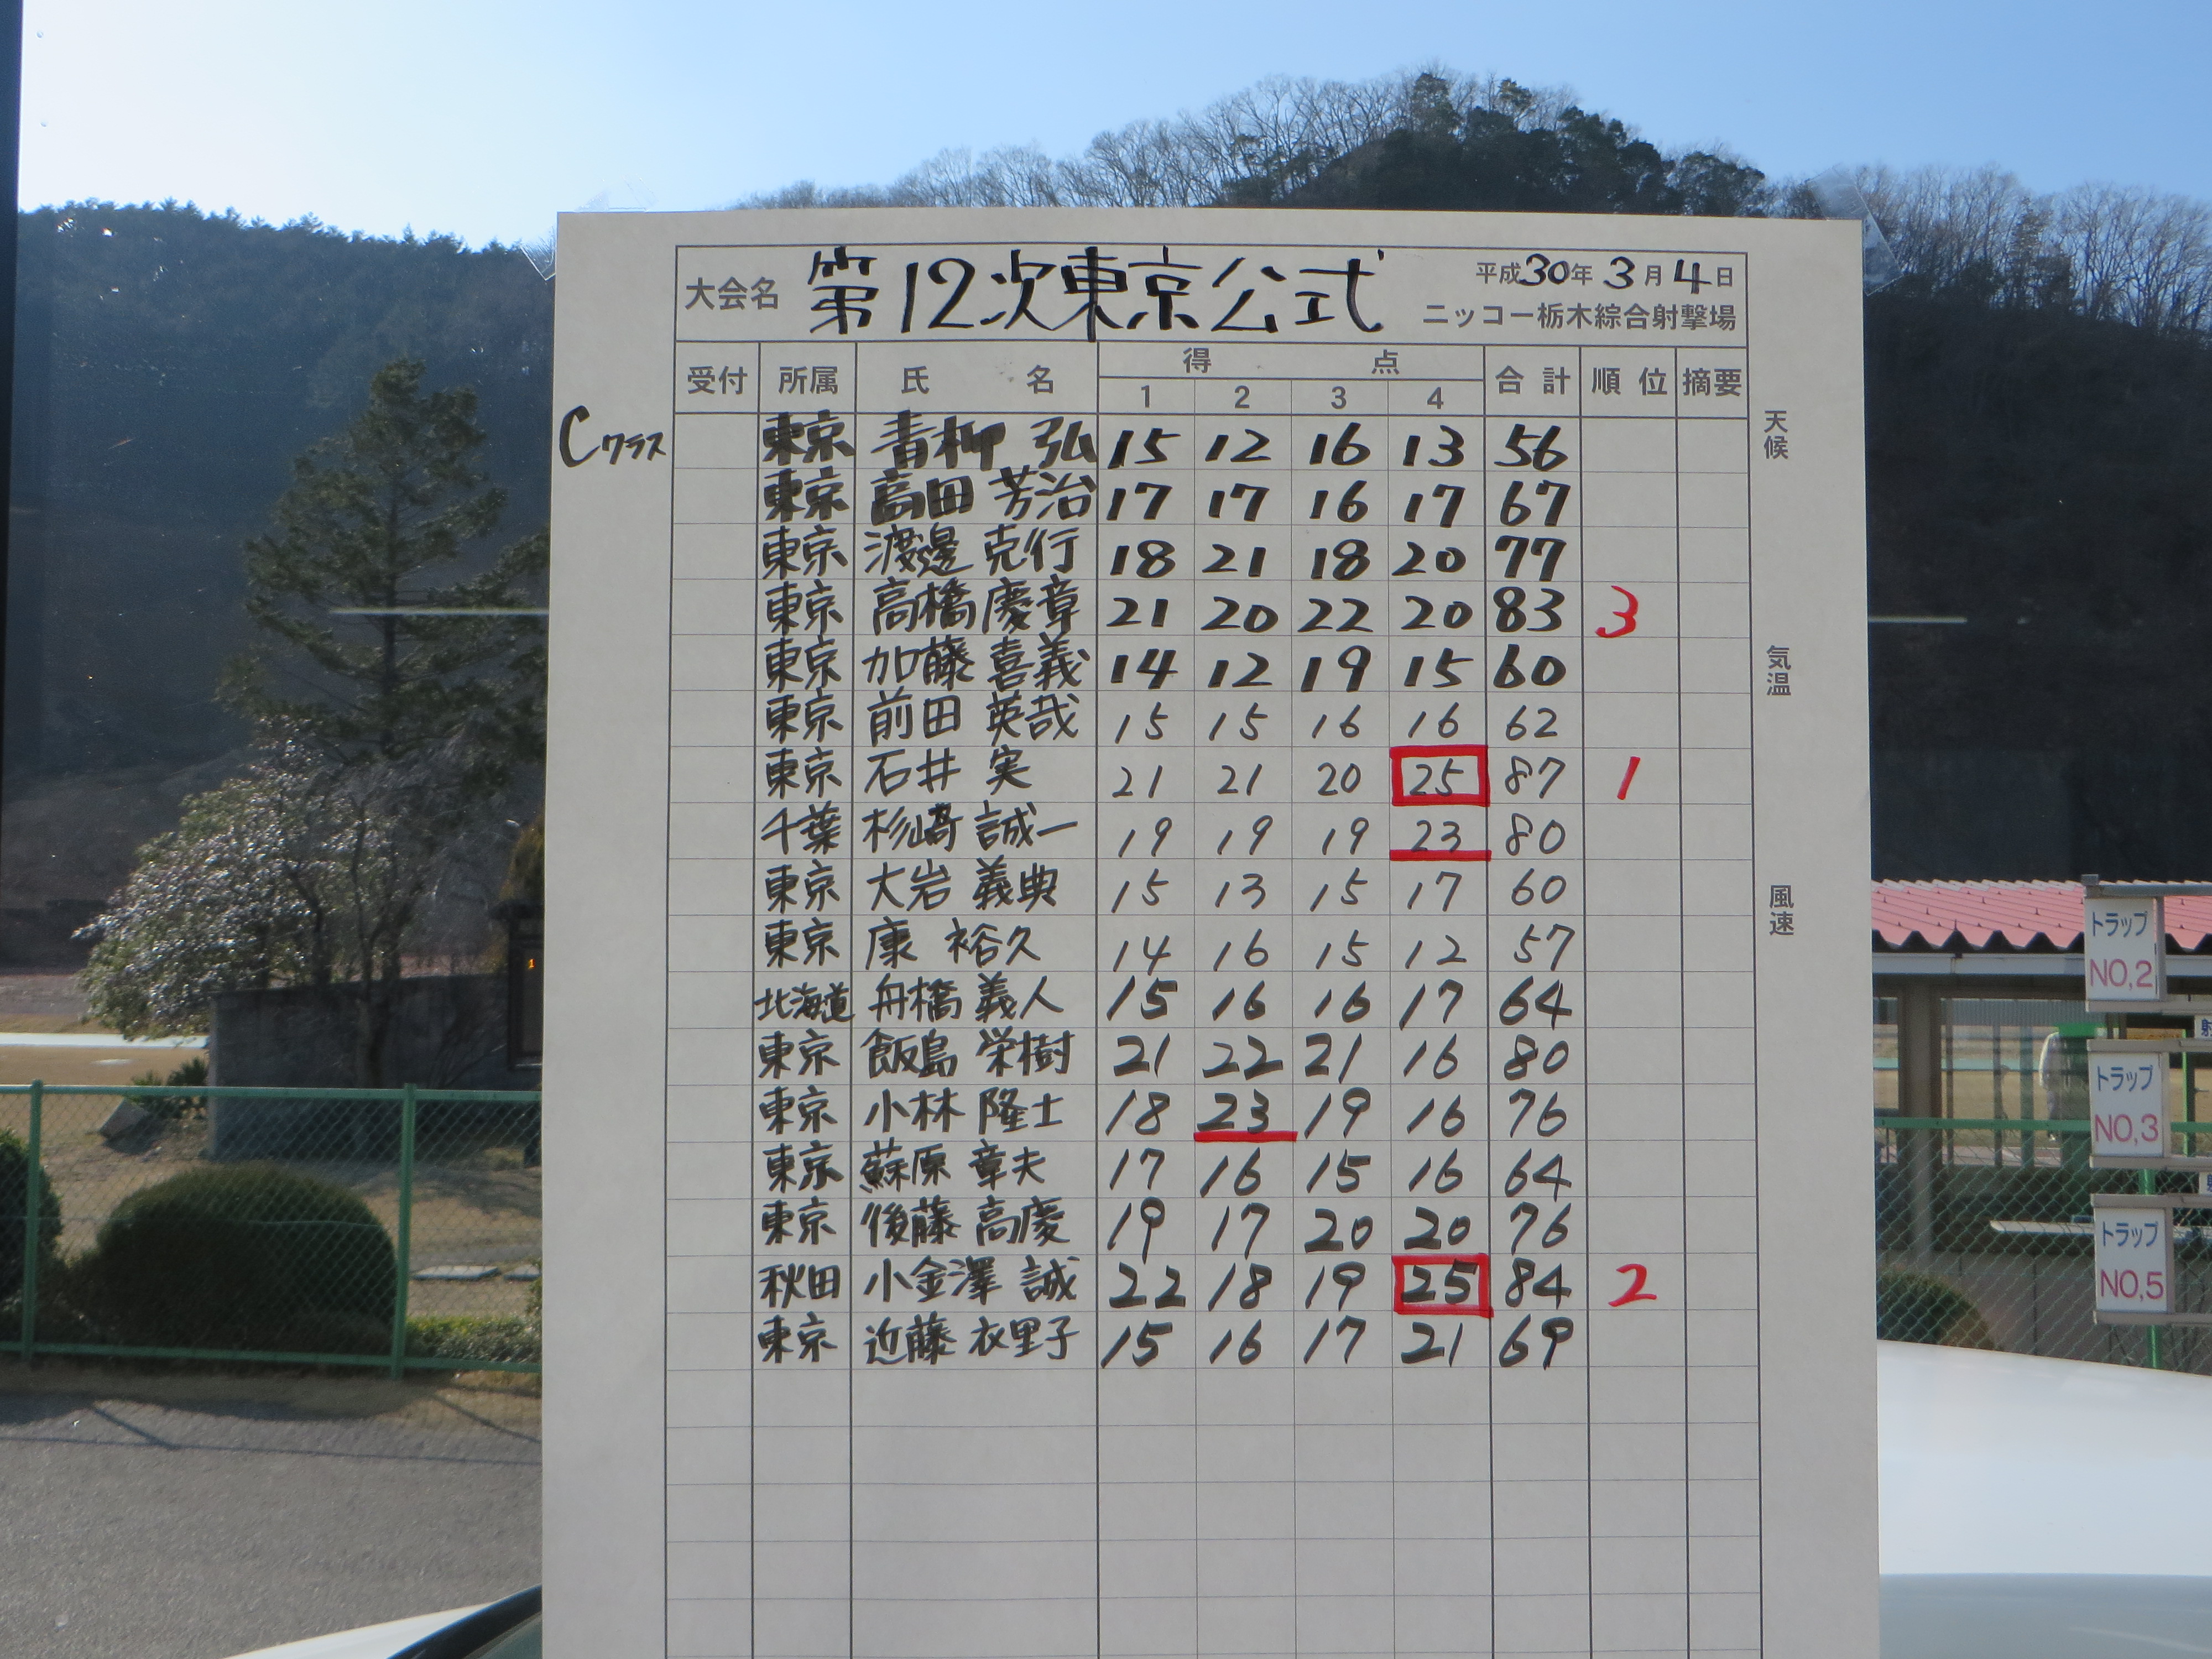 大会名 第12次東京公式 平成30年3月4日
ニッコー栃木綜合射撃場
受付 所属 氏名 得点 合計 順位 摘要
1 2 3 4
Cクラス 東京 青柳 弘 15 12 16 13 56
東京 高田 芳治 17 17 16 17 67
東京 渡邊 克行 18 21 18 20 77
東京 高橋 慶章 21 20 22 20 83 3
東京 加藤 喜義 14 12 19 15 60
東京 前田 英哉 15 15 16 16 62
東京 石井 実 21 21 20 25 87 1
千葉 杉崎 誠一 19 19 19 23 80
東京 大岩 義典 15 13 15 17 60
東京 康 裕久 14 16 15 12 57
北海道 舟橋 義人 15 16 16 17 64
東京 飯島 栄樹 21 22 21 16 80
東京 小林 隆士 18 23 19 16 76
東京 蘇原 章夫 17 16 15 16 64
東京 後藤 高慶 19 17 20 20 76
秋田 小金澤 誠 22 18 19 25 84 2
東京 近藤 衣里子 15 16 17 21 69
天候
気温
風速
トラップ
NO,2
トラップ
NO,3
トラップ
NO,5